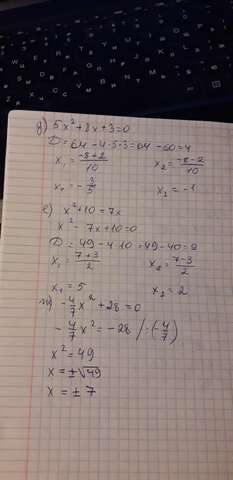 д) 5x²+8x+3=0
D=64-4·5·3=64-60=4
x₁=(-8+2)/10 x₂=(-8-2)/10
x₁=-3/5 x₂=-1
е) x²+10=7x
x²-7x+10=0
D=49-4·10=49-40=9
x₁=(7+3)/2 x₂=(7-3)/2
x₁=5 x₂=2
ж) -4/7x²+28=0
-4/7x²=-28 /:(-4/7)
x²=49
x=±√49
x=±7